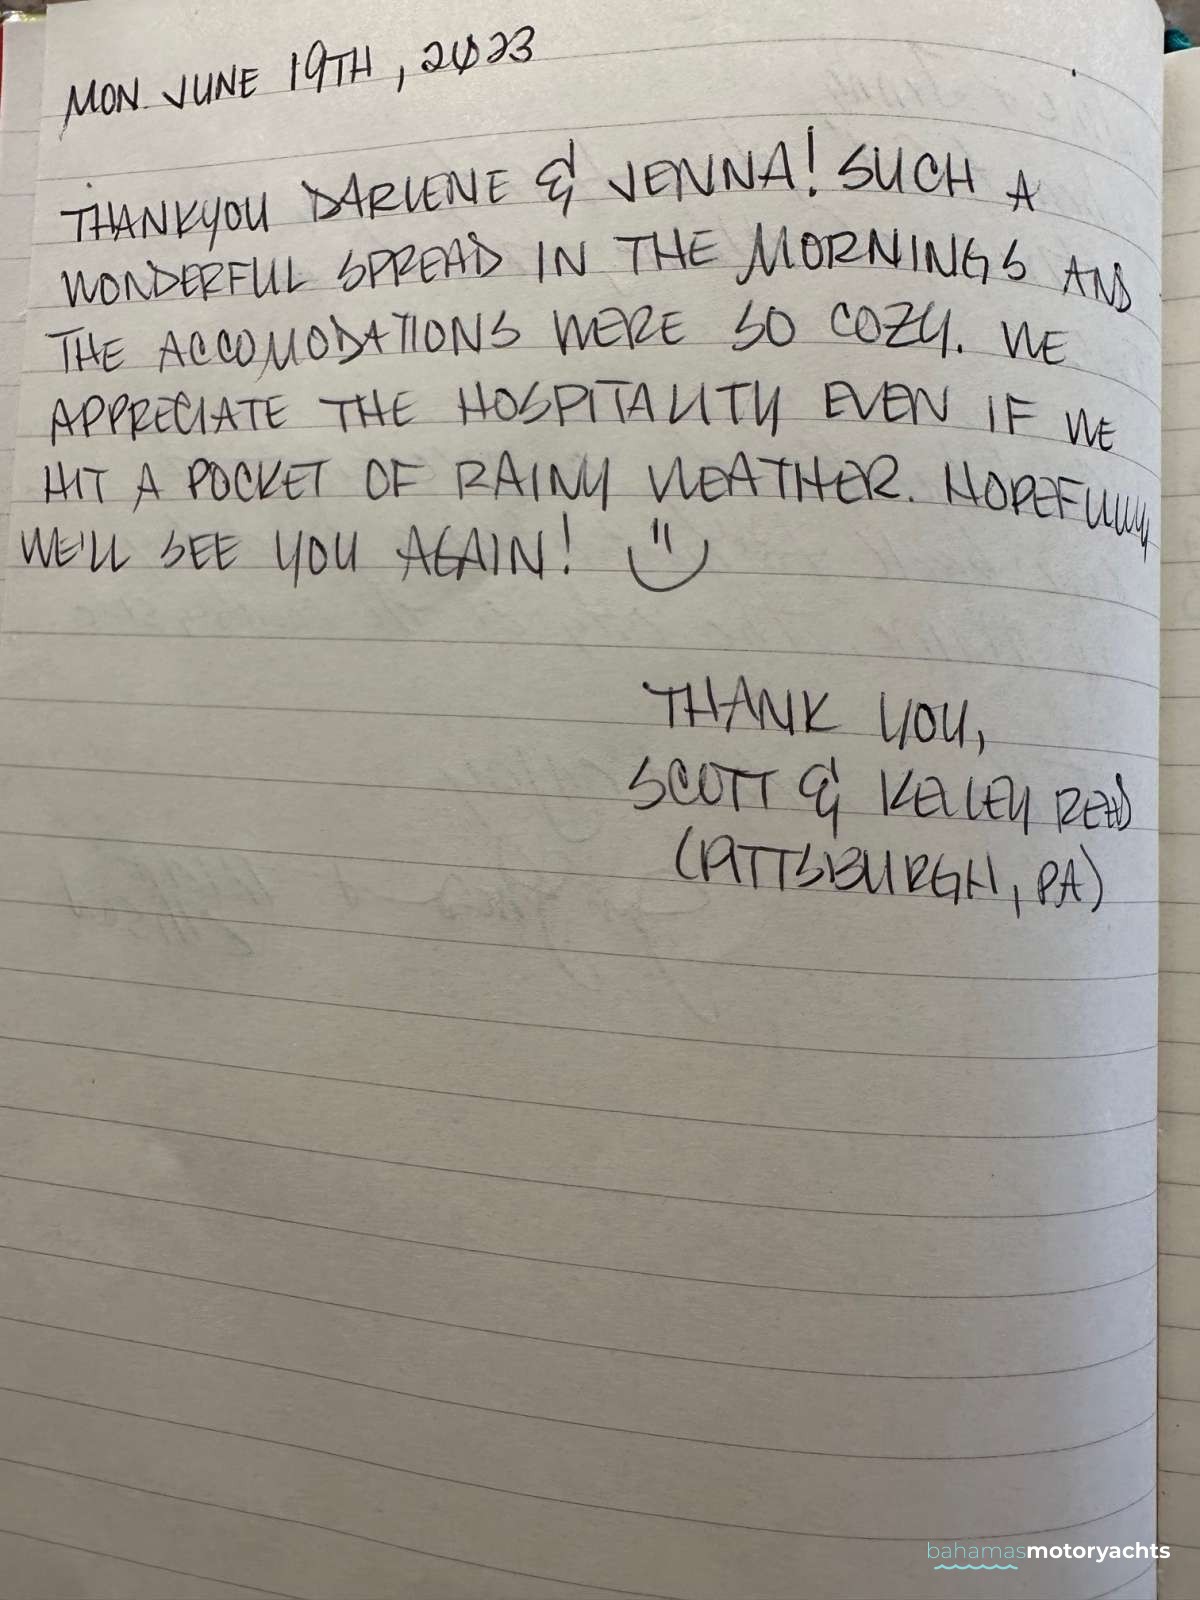 MON. JUNE 19TH, 2023
THANKYOU DARLENE & JENNA! SUCH A
WONDERFUL SPREAD IN THE MORNINGS AND
THE ACCOMODATIONS WERE SO COZY. WE
APPRECIATE THE HOSPITALITY EVEN IF WE
HIT A POCKET OF RAINY WEATHER. HOPEFULLY
WE'LL SEE YOU AGAIN!
THANK YOU,
SCOTT & KELLEY REED
(PITTSBURGH, PA)
bahamasmotoryachts